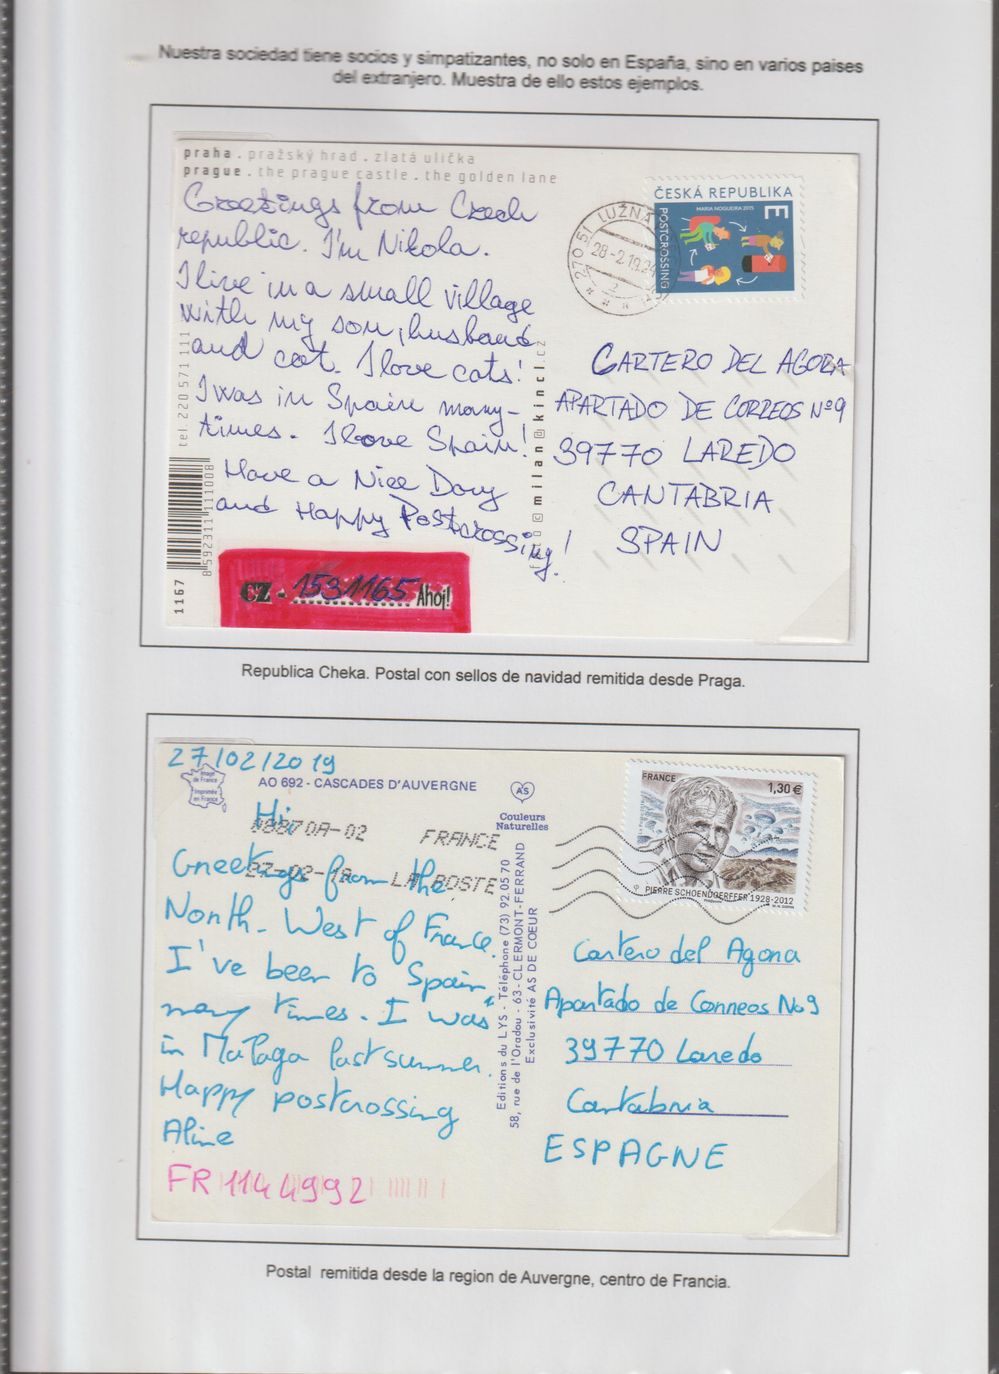 Nuestra sociedad tiene socios y simpatizantes, no solo en España, sino en varios paises
del extranjero. Muestra de ello estos ejemplos.
praha . pražský hrad . zlatá ulička
prague . the prague castle . the golden lane
Greetings from Czech
republic. I'm Nikola.
I live in a small village
with my son, husband
and cat. I love cats!
I was in Spain many-
times. I love Spain!
Have a Nice Day
and Happy Postcrossing!
CZ - 1531165 Ahoj!
tel 220 571 111
8592311111008
1167
milan@kincl.cz
27051 LUŽNÁ
28-2.19.24
ČESKÁ REPUBLIKA
MARIA NOGUEIRA 2015
E
POSTCROSSING
CARTERO DEL AGORA
APARTADO DE CORREOS Nº9
39770 LAREDO
CANTABRIA
SPAIN
Republica Cheka. Postal con sellos de navidad remitida desde Praga.
27/02/2019
Image
de France
Imprimée
en France
AO 692 - CASCADES D'AUVERGNE
AS
Couleurs
Naturelles
FRANCE
LA POSTE
Hi,
Greetings from the
North-West of France.
I've been to Spain
many times. I was
in Malaga last summer.
Happy postcrossing
Aline
FR 1144992
Editions du LYS - Téléphone (73) 92.05.70
58, rue de l'Oradou - 63-CLERMONT-FERRAND
Exclusivité AS DE COEUR
FRANCE
1,30 €
PIERRE SCHOENDOERFFER 1928-2012
Cartero del Agora
Apartado de Correos No9
39770 Laredo
Cantabria
ESPAGNE
Postal remitida desde la region de Auvergne, centro de Francia.